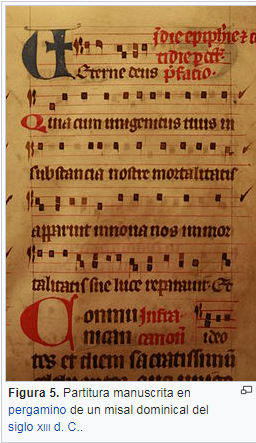 Eterne deus p̄facio.
Quia cum unigenitus tuus in
substancia nostre mortalitatis
apparuit innoua nos inmor
talitatis sue luce reparauit Et
Commu Infra
nican ideo
tes et diem sacratissimū
Figura 5. Partitura manuscrita en
pergamino de un misal dominical del
siglo XIII d. C..